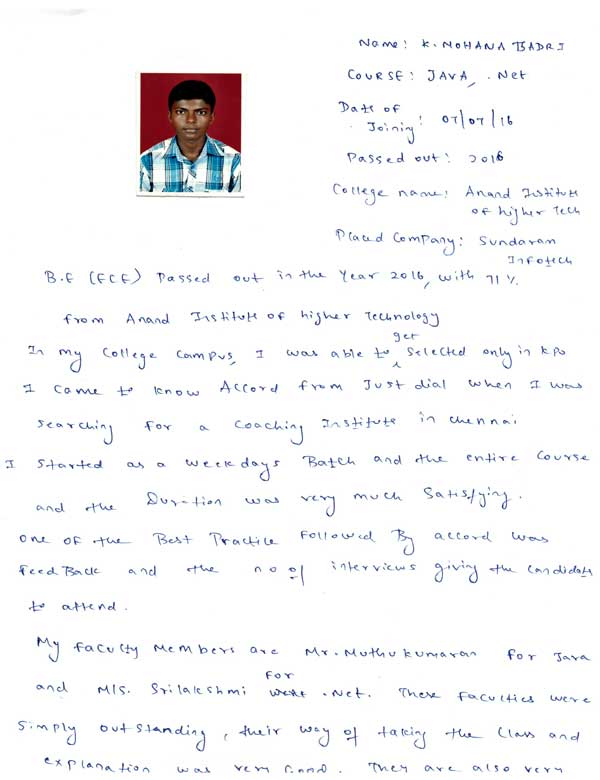 Name: K. MOHANA BADRI
COURSE: JAVA, .Net
Date of
Joining: 07/07/16
Passed out: 2016
College name: Anand Institute
of higher Tech
Placed Company: Sundaram
Infotech
B.E (ECE) Passed out in the Year 2016, with 71%
from Anand Institute of higher Technology
get
In my College Campus, I was able to selected only in kpo
I came to know Accord from Just dial when I was
searching for a coaching Institute in chennai
I started as a weekdays Batch and the entire course
and the Duration was very much Satisfying.
one of the Best Practice followed By accord was
feedBack and the no of interviews giving the candidate
to attend.
My faculty Members are Mr. Muthukumaran for Java
for
and M/S. Srilakshmi .Net. These faculties were
simply outstanding, their way of taking the class and
explanation was very Good. They are also very